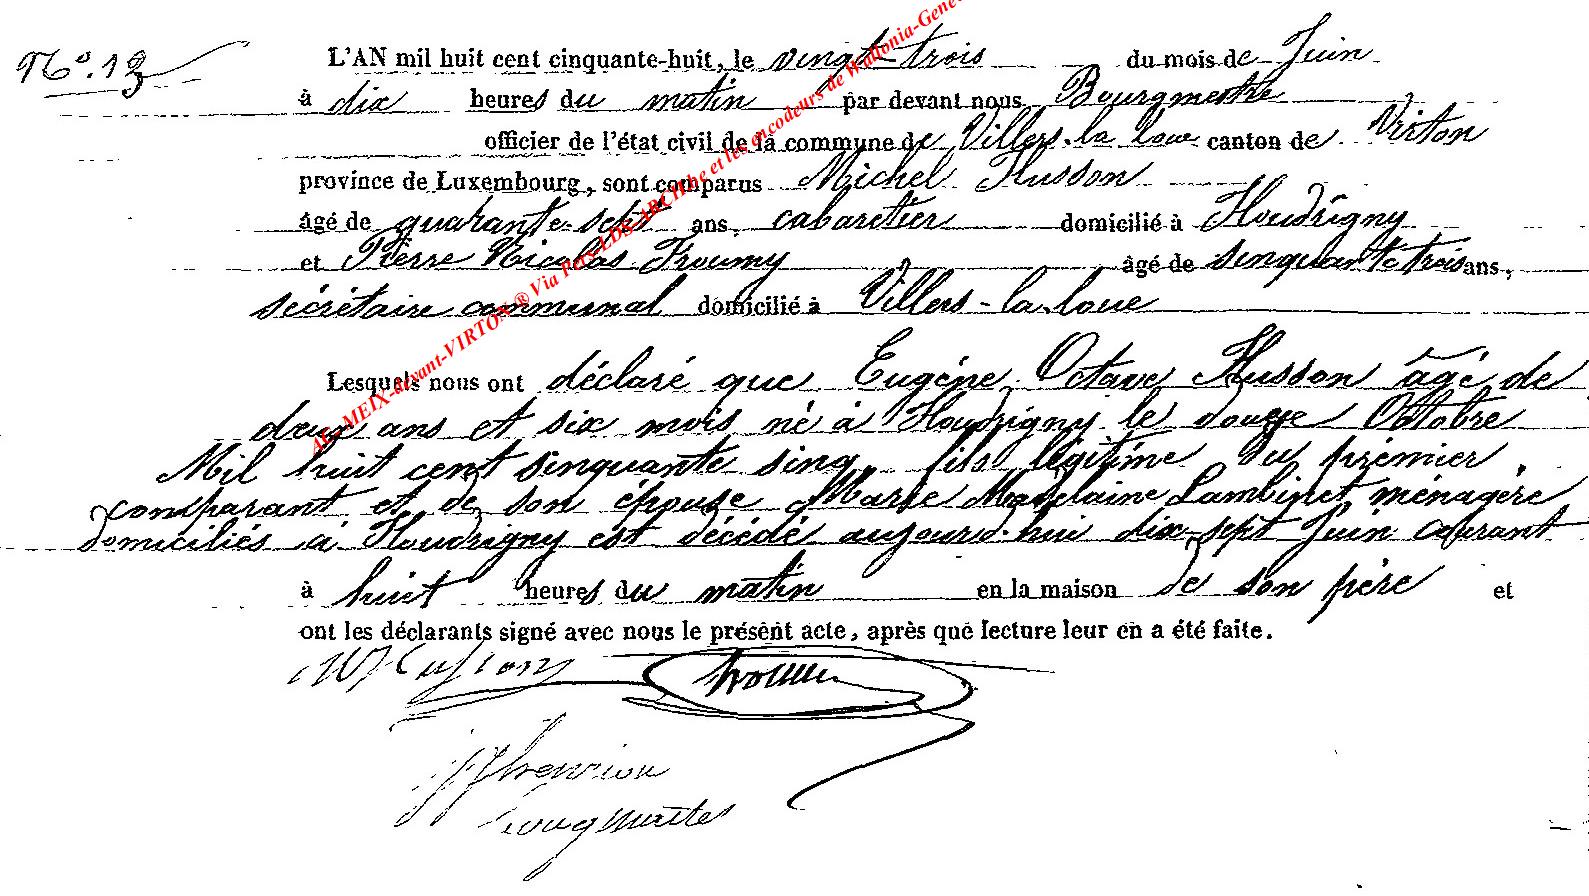 No. 13
L'AN mil huit cent cinquante-huit, le vingt-trois du mois de Juin
à dix heures du matin par devant nous Bourgmestre
officier de l'état civil de la commune de Villers-la-loue canton de Virton
province de Luxembourg, sont comparus Michel Husson
âgé de quarante-sept ans, cabaretier domicilié à Houdrigny
et Pierre Nicolas Froumy âgé de sinquante trois ans,
sécrétaire communal domicilié à Villers-la-loue
Lesquels nous ont déclaré que Eugéne Octave Husson âgé de
deux ans et six mois né à Houdrigny le douze Octobre
Mil huit cent sinquante sinq fils légitime du prémier
comparant et de son épouse Marie Madelaine Lambinet ménagère
domiciliés à Houdrigny est décédé aujourd'hui dix-sept Juin courant
à huit heures du matin en la maison de son père et
ont les déclarants signé avec nous le présent acte, après que lecture leur en a été faite.
M Husson
AE-MEIX-devant-VIRTON ® Via Pers-LDS-ARCH.be et les encodeurs de Wallonia-Gene